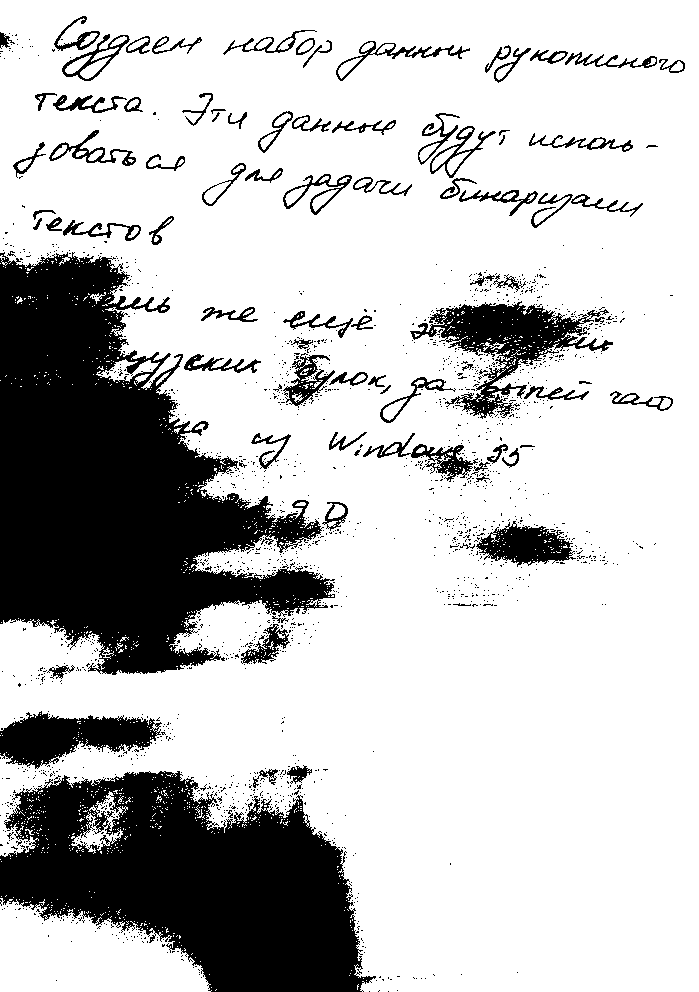 Создаем набор данных рукописного
текста. Эти данные будут исполь-
зоваться для задачи бинаризации
текстов
же ещё
булок, да выпей чаю
из Windows 95
9 D